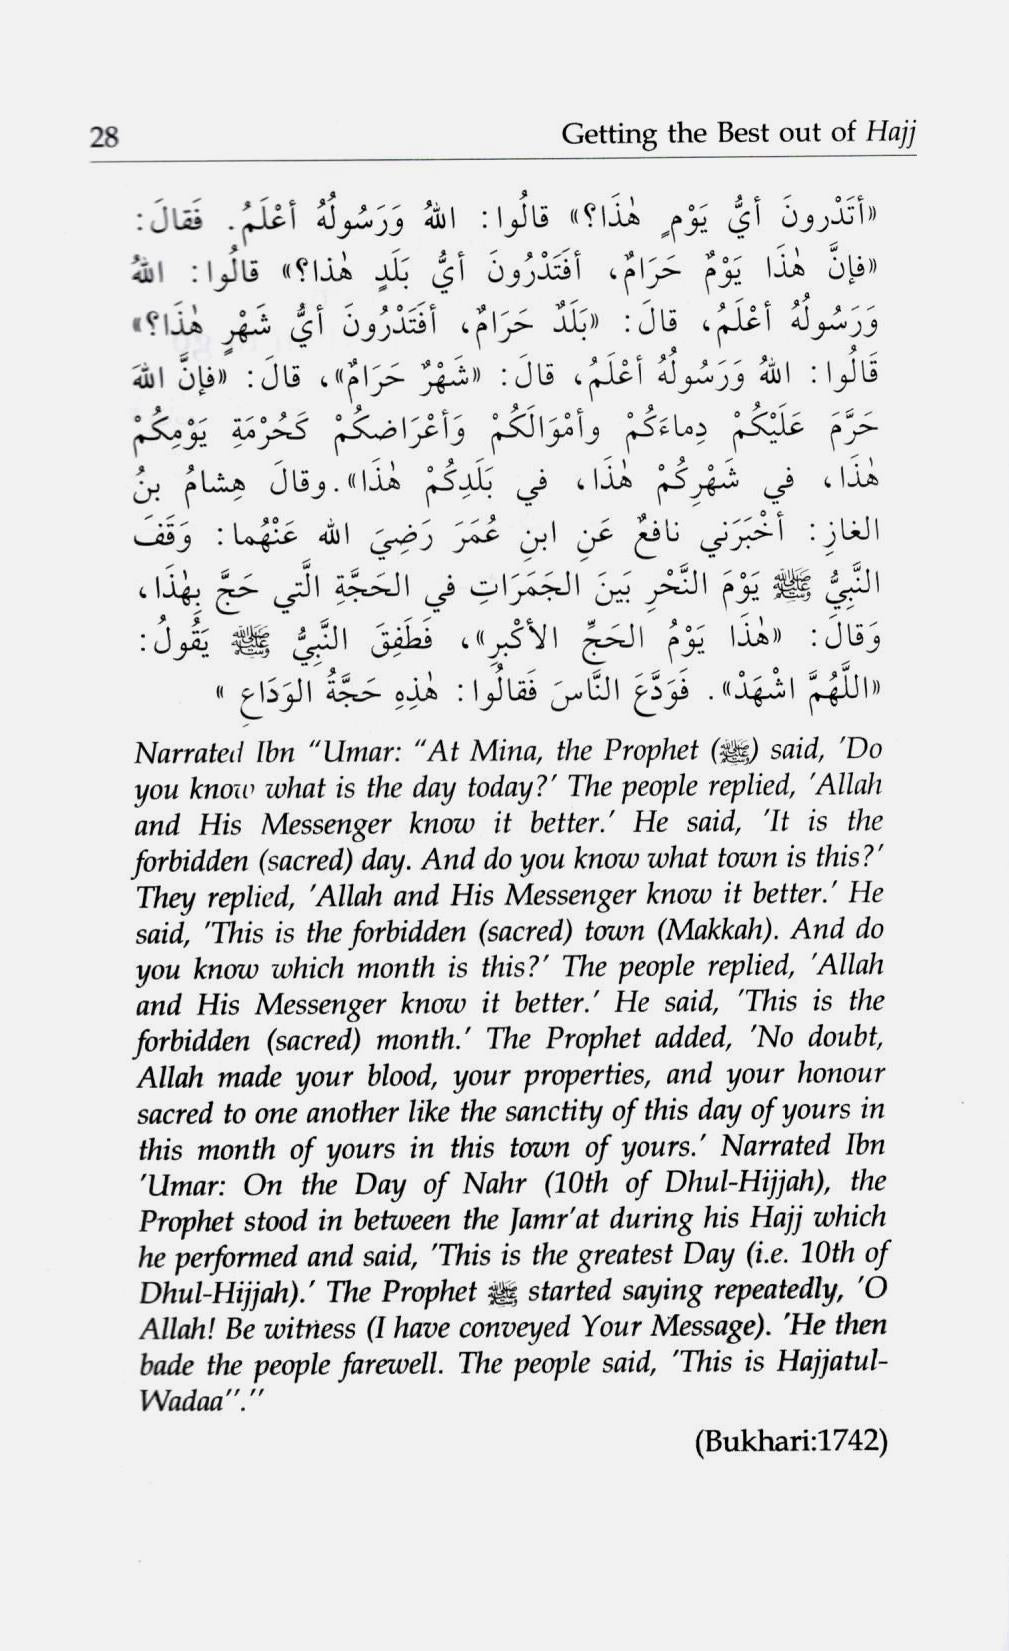 28
Getting the Best out of Hajj
«أتَدْرونَ أيُّ يَوْمٍ هٰذَا؟» قالُوا: اللهُ وَرَسُولُهُ أعْلَمُ. فَقالَ:
«فإنَّ هٰذَا يَوْمٌ حَرَامٌ، أفَتَدْرُونَ أيُّ بَلَدٍ هٰذا؟» قالُوا: اللهُ
وَرَسُولُهُ أعْلَمُ، قالَ: «بَلَدٌ حَرَامٌ، أفَتَدْرُونَ أيُّ شَهْرٍ هٰذَا؟»
قَالُوا: اللهُ وَرَسُولُهُ أعْلَمُ، قالَ: «شَهْرٌ حَرَامٌ»، قالَ: «فإنَّ اللهَ
حَرَّمَ عَلَيْكُمْ دِماءَكُمْ وأمْوَالَكُمْ وَأعْرَاضكُمْ كَحُرْمَةِ يَوْمِكُمْ
هٰذَا، في شَهْرِكُمْ هٰذَا، في بَلَدِكُمْ هٰذَا». وقالَ هِشامُ بنُ
الغازِ: أخْبَرَني نافعٌ عَنِ ابنِ عُمَرَ رَضِيَ الله عَنْهُما: وَقَفَ
النَّبِيُّ ﷺ يَوْمَ النَّحْرِ بَينَ الجَمَرَاتِ في الحَجَّةِ الَّتي حَجَّ بِهٰذَا،
وَقالَ: «هٰذَا يَوْمُ الحَجِّ الأكْبرِ»، فَطَفِقَ النَّبِيُّ ﷺ يَقُولُ:
«اللَّهُمَّ اشْهَدْ». فَوَدَّعَ النَّاسَ فَقالُوا: هٰذِهِ حَجَّةُ الوَدَاعِ »
Narrated Ibn “Umar: “At Mina, the Prophet (ﷺ) said, ’Do
you know what is the day today?’ The people replied, ’Allah
and His Messenger know it better.’ He said, ’It is the
forbidden (sacred) day. And do you know what town is this?’
They replied, ’Allah and His Messenger know it better.’ He
said, ’This is the forbidden (sacred) town (Makkah). And do
you know which month is this?’ The people replied, ’Allah
and His Messenger know it better.’ He said, ’This is the
forbidden (sacred) month.’ The Prophet added, ’No doubt,
Allah made your blood, your properties, and your honour
sacred to one another like the sanctity of this day of yours in
this month of yours in this town of yours.’ Narrated Ibn
’Umar: On the Day of Nahr (10th of Dhul-Hijjah), the
Prophet stood in between the Jamr’at during his Hajj which
he performed and said, ’This is the greatest Day (i.e. 10th of
Dhul-Hijjah).’ The Prophet ﷺ started saying repeatedly, ’O
Allah! Be witness (I have conveyed Your Message). ’He then
bade the people farewell. The people said, ’This is Hajjatul-
Wadaa”.”
(Bukhari:1742)